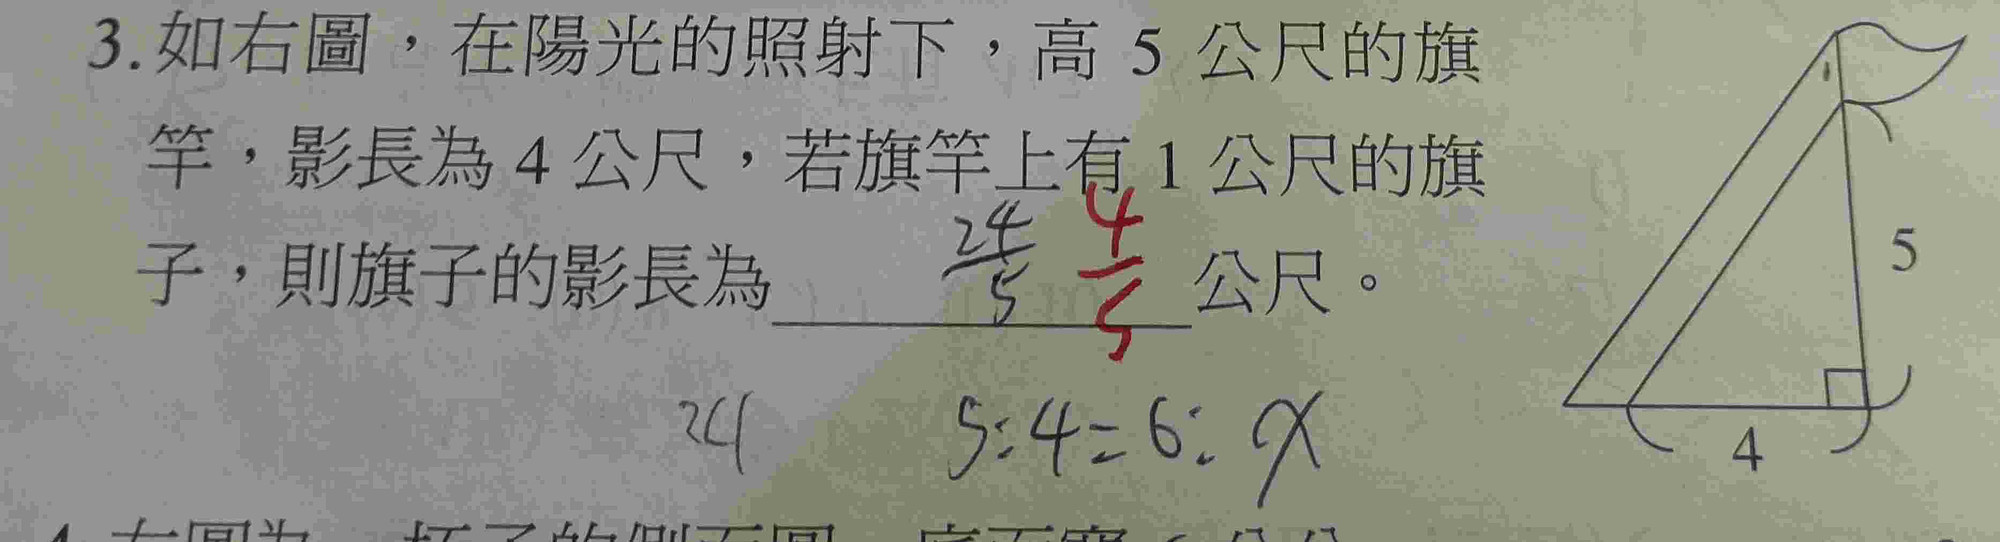 3.如右圖，在陽光的照射下，高 5 公尺的旗
竿，影長為 4 公尺，若旗竿上有 1 公尺的旗
子，則旗子的影長為 24/5 4/5 公尺。
24 5:4=6:x
1
5
4